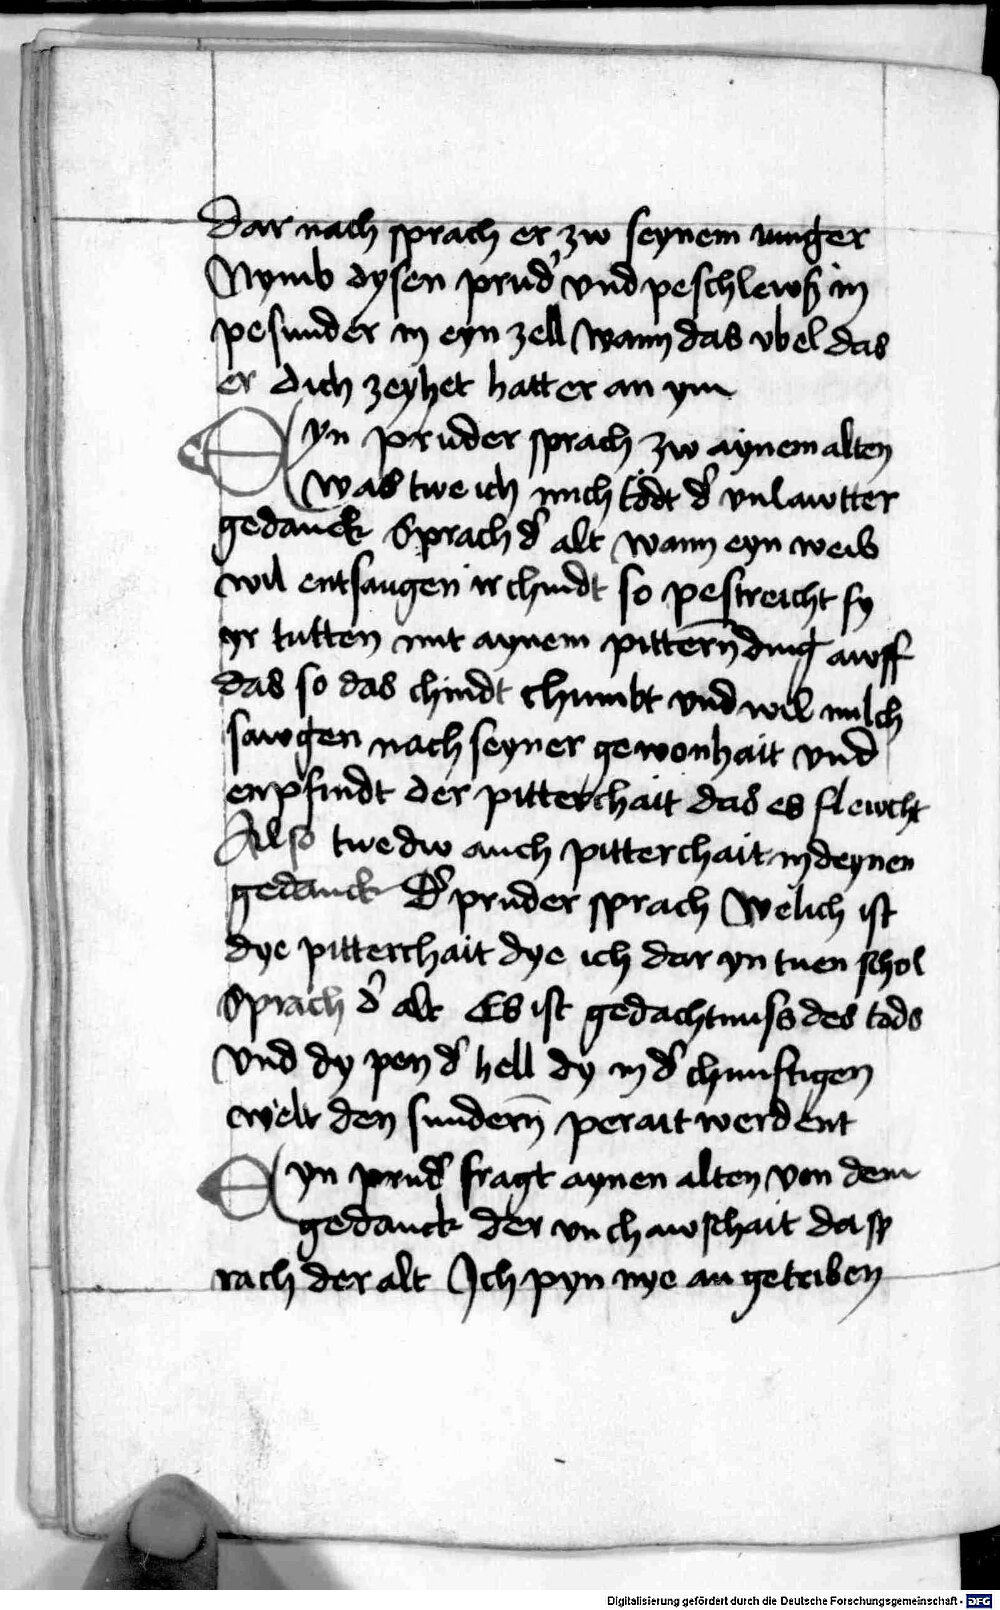 Dar nach sprach er zw seynem iunger
Nymb dysen prud' vnd peschlewß in
pesunder in eyn zell Wann das vbel das
er dich zeyhet hatt er an ym
Eyn pruder sprach zw aynem alten
was twe ich mich tödt d' vnlawtter
gedanck Sprach d' alt wann eyn weib
wil entsaugen ir chindt so pestreicht sy
yr tutten mit aynem pittern̄ ding awff
das so das chindt chumbt vnd wil milch
sawgen nach seyner gewonhait vnd
enpfindt der pitterchait das es flewcht
Also twe dw auch pitterchait in deynen
gedanck D' pruder sprach Welich ist
dye pitterchait dye ich dar yn tuen schol
Sprach d' alt Es ist gedachtnuss des tods
Vnd dy pen d' hell dy in d' chunftigen
welt den sundern̄ perait werdent
Eyn prud' fragt aynen alten von dem
gedanck der vnchawschait da sp
rach der alt Ich pyn nye an getriben
Digitalisierung gefördert durch die Deutsche Forschungsgemeinschaft - DFG